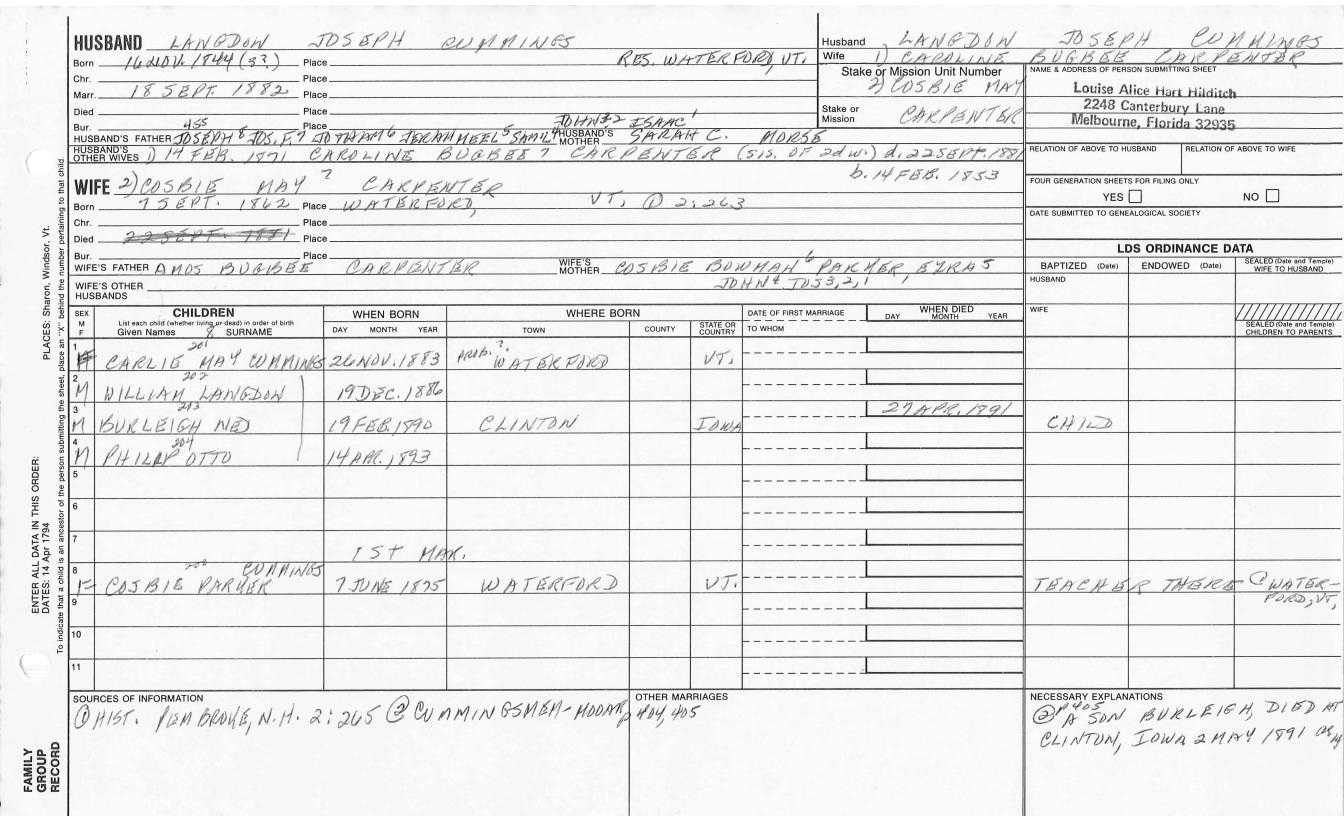 HUSBAND LANGDON JOSEPH CUMMINGS
Born 16 NOV. 1844 (s3.) Place RES. WATERFORD, VT.
Chr. Place
Marr. 18 SEPT. 1882 Place
Died Place
Bur. 455 Place JOHN3,2 ISAAC1
HUSBAND'S FATHER JOSEPH8 JOS.F.7 JOTHAM6 JERAHMEEL5 SAML4 HUSBAND'S MOTHER SARAH C. MORSE
HUSBAND'S OTHER WIVES 1) 14 FEB. 1871 CAROLINE BUGBEE? CARPENTER (SIS. OF 2d W.) d. 22 SEPT. 1881
b. 14 FEB. 1853
WIFE 2) COSBIE MAY? CARPENTER
Born 7 SEPT. 1862 Place WATERFORD, VT. ① 2:263
Chr. Place
Died 22 SEPT. 1881 Place
Bur. Place
WIFE'S FATHER AMOS BUGBEE CARPENTER WIFE'S MOTHER COSBIE BOWMAN6 PARKER, EZRA5
WIFE'S OTHER HUSBANDS JOHN4 JOS3,2,1
Husband LANGDON JOSEPH CUMMINGS
Wife 1) CAROLINE BUGBEE CARPENTER
Stake or Mission Unit Number
2) COSBIE MAY
Stake or Mission CARPENTER
NAME & ADDRESS OF PERSON SUBMITTING SHEET
Louise Alice Hart Hilditch
2248 Canterbury Lane
Melbourne, Florida 32935
RELATION OF ABOVE TO HUSBAND RELATION OF ABOVE TO WIFE
FOUR GENERATION SHEETS FOR FILING ONLY
YES NO
DATE SUBMITTED TO GENEALOGICAL SOCIETY
LDS ORDINANCE DATA
BAPTIZED (Date) ENDOWED (Date) SEALED (Date and Temple) WIFE TO HUSBAND
HUSBAND
WIFE
SEALED (Date and Temple) CHILDREN TO PARENTS
SEX M F
CHILDREN
List each child (whether living or dead) in order of birth
Given Names 8 SURNAME
WHEN BORN
DAY MONTH YEAR
WHERE BORN
TOWN COUNTY STATE OR COUNTRY
DATE OF FIRST MARRIAGE
TO WHOM
WHEN DIED
DAY MONTH YEAR
201
1 CARLIE MAY CUMMINGS 26 NOV. 1883 PROB.?. WATERFORD VT.
202
2 M WILLIAM LANGDON 19 DEC. 1886
203
3 M BURLEIGH NED 19 FEB. 1890 CLINTON IOWA 27 APR. 1891 CHILD
204
4 M PHILIP OTTO 14 APR. 1893
5
6
7 1ST MAR.
200 CUMMINGS
8 F COSBIE PARKER 7 JUNE 1875 WATERFORD VT. TEACHER THERE @ WATER-
FORD, VT.
9
10
11
SOURCES OF INFORMATION
① HIST. PEMBROKE, N.H. 2:265 ② CUMMINGSMEM-MOOAR, p 404, 405
OTHER MARRIAGES
NECESSARY EXPLANATIONS
② P405
A SON BURLEIGH, DIED AT
CLINTON, IOWA 2 MAY 1891
PLACES: Sharon, Windsor, Vt.
ENTER ALL DATA IN THIS ORDER:
DATES: 14 Apr 1794
To indicate that a child is an ancestor of the person submitting the sheet, place an "X" behind the number pertaining to that child.
FAMILY
GROUP
RECORD